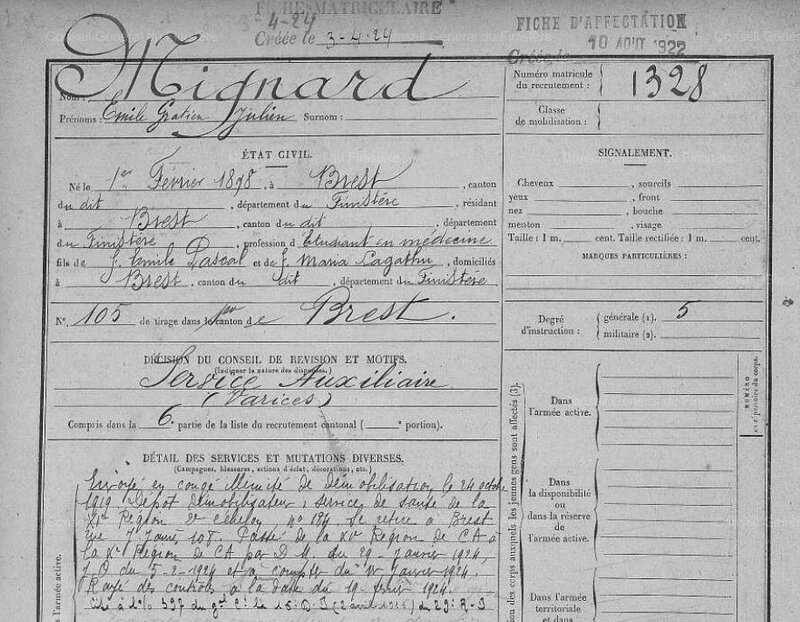 FICHE MATRICULAIRE
3-4-24
Créée le 3-4-24
FICHE D'AFFECTATION
Créée le 10 AOUT 1922
Nom : Mignard
Prénoms : Emile Gratien Julien Surnom :
Numéro matricule du recrutement : 1328
Classe de mobilisation :
ÉTAT CIVIL.
Né le 1er Février 1898, à Brest, canton
du dit, département du Finistère, résidant
à Brest, canton du dit, département
du Finistère, profession d'Etudiant en médecine
fils de f. Emile Pascal et de f. Maria Lagathu, domiciliés
à Brest, canton du dit, département du Finistère.
N° 105 de tirage dans le 1er canton de Brest.
SIGNALEMENT.
Cheveux , sourcils
yeux , front
nez , bouche
menton , visage
Taille : 1 m. cent. Taille rectifiée : 1 m. cent.
MARQUES PARTICULIÈRES :
Degré d'instruction : générale (1). 5
militaire (2).
DÉCISION DU CONSEIL DE REVISION ET MOTIFS.
(Indiquer la nature des dispenses.)
Service Auxiliaire
(Varices)
Compris dans la 6e partie de la liste du recrutement cantonal ( e portion).
DÉTAIL DES SERVICES ET MUTATIONS DIVERSES.
(Campagnes, blessures, actions d'éclat, décorations, etc.)
Envoyé en congé illimité de démobilisation le 24 octobre
1919 Dépôt démobilisateur, service de santé de la
XIe Région 2e échelon, no 184 Se retire à Brest
rue J Jaurès, 107. Passé de la XVe Région de CA à
la Xe Région de CA par D M. du 29 Janvier 1924,
J O du 5-2-1924 et à compter du Janvier 1924.
Rayé des contrôles à la date du 19 1924.
l'armée active.
NUMÉRO
Dans l'armée active.
Dans la disponibilité ou dans la réserve de l'armée active.
Dans l'armée territoriale et dans
ion des corps auxquels les jeunes gens sont affectés (3).